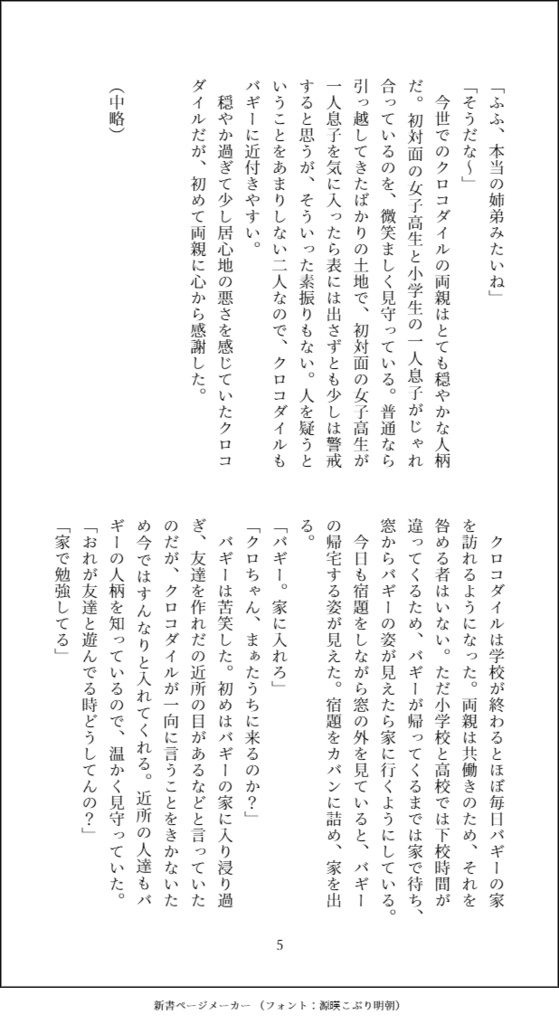 「ふふ、本当の姉弟みたいね」
「そうだな〜」
　今世でのクロコダイルの両親はとても穏やかな人柄
だ。初対面の女子高生と小学生の一人息子がじゃれ
合っているのを、微笑ましく見守っている。普通なら
引っ越してきたばかりの土地で、初対面の女子高生が
一人息子を気に入ったら表には出さずとも少しは警戒
すると思うが、そういった素振りもない。人を疑うと
いうことをあまりしない二人なので、クロコダイルも
バギーに近付きやすい。
　穏やか過ぎて少し居心地の悪さを感じていたクロコ
ダイルだが、初めて両親に心から感謝した。
（中略）
　クロコダイルは学校が終わるとほぼ毎日バギーの家
を訪れるようになった。両親は共働きのため、それを
咎める者はいない。ただ小学校と高校では下校時間が
違ってくるため、バギーが帰ってくるまでは家で待ち、
窓からバギーの姿が見えたら家に行くようにしている。
　今日も宿題をしながら窓の外を見ていると、バギー
の帰宅する姿が見えた。宿題をカバンに詰め、家を出
る。
「バギー。家に入れろ」
「クロちゃん、まぁたうちに来るのか？」
　バギーは苦笑した。初めはバギーの家に入り浸り過
ぎ、友達を作れだの近所の目があるなどと言っていた
のだが、クロコダイルが一向に言うことをきかないた
め今ではすんなりと入れてくれる。近所の人達もバ
ギーの人柄を知っているので、温かく見守っていた。
「おれが友達と遊んでる時どうしてんの？」
「家で勉強してる」
5
新書ページメーカー（フォント：源暎こぶり明朝）